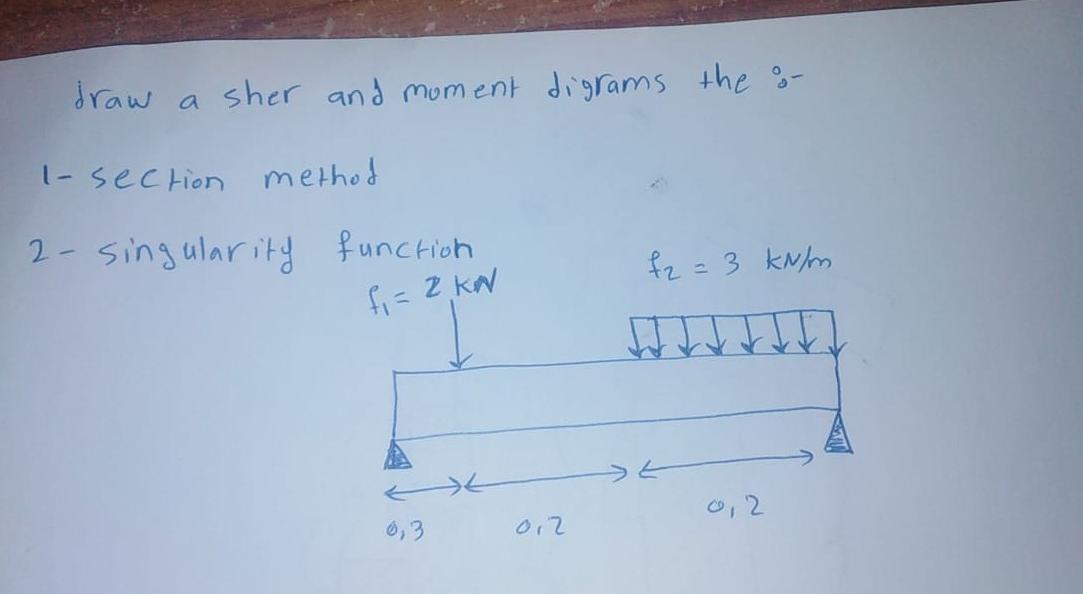 draw a sher and moment digrams the :-
1- section method
2- singularity function
f₁ = 2 KN
f₂ = 3 kN/m
0,3 0,2 0,2